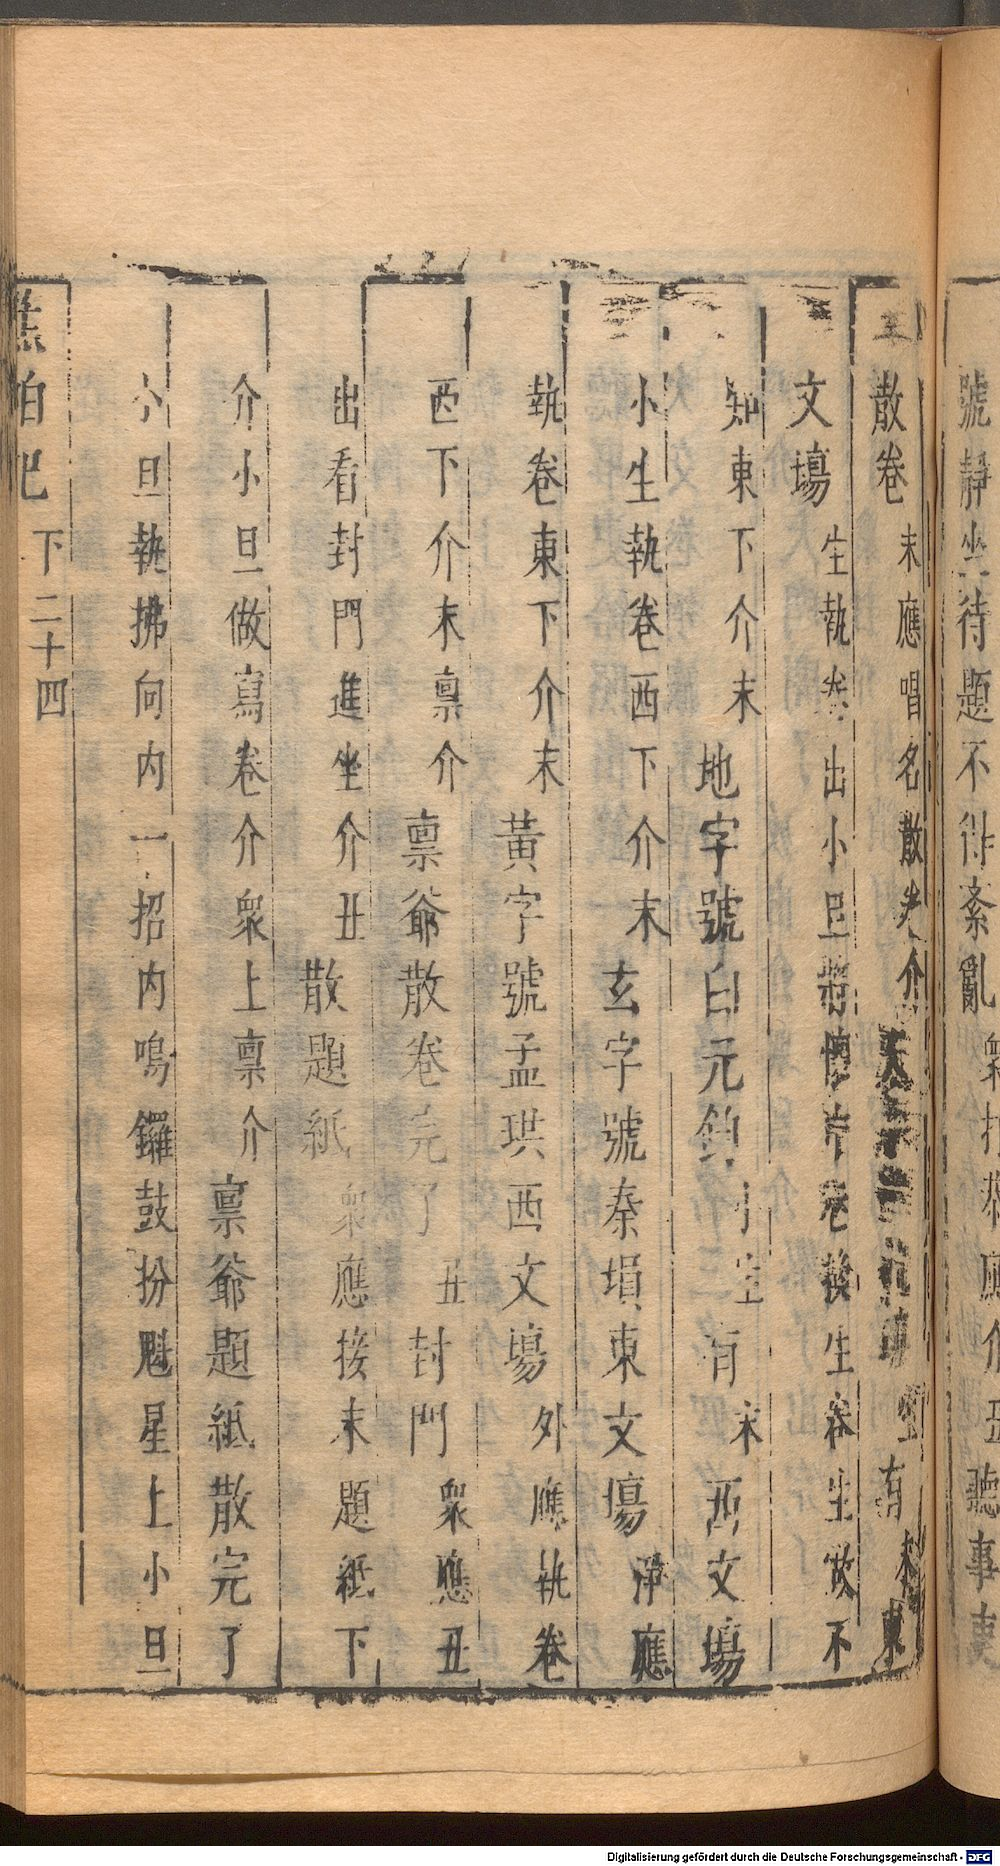 號靜坐待題不得紊亂衆打恭應介丑聽事吏
散卷末應唱名散卷介天字號生有末東
文場生執卷出小旦將傳片卷換生卷生做不
知東下介末地字號白元鈞小生有末西文場
小生執卷西下介末玄字號秦塤東文場淨應
執卷東下介末黃字號孟珙西文場外應執卷
西下介末禀介禀爺散卷完了丑封門衆應丑
出看封門進坐介丑散題紙衆應接末題紙下
介小旦做寫卷介衆上禀介禀爺題紙散完了
介旦執拂向内一招内鳴鑼鼓扮魁星上小旦
蕉帕記 下 二十四
Digitalisierung gefördert durch die Deutsche Forschungsgemeinschaft - DFG